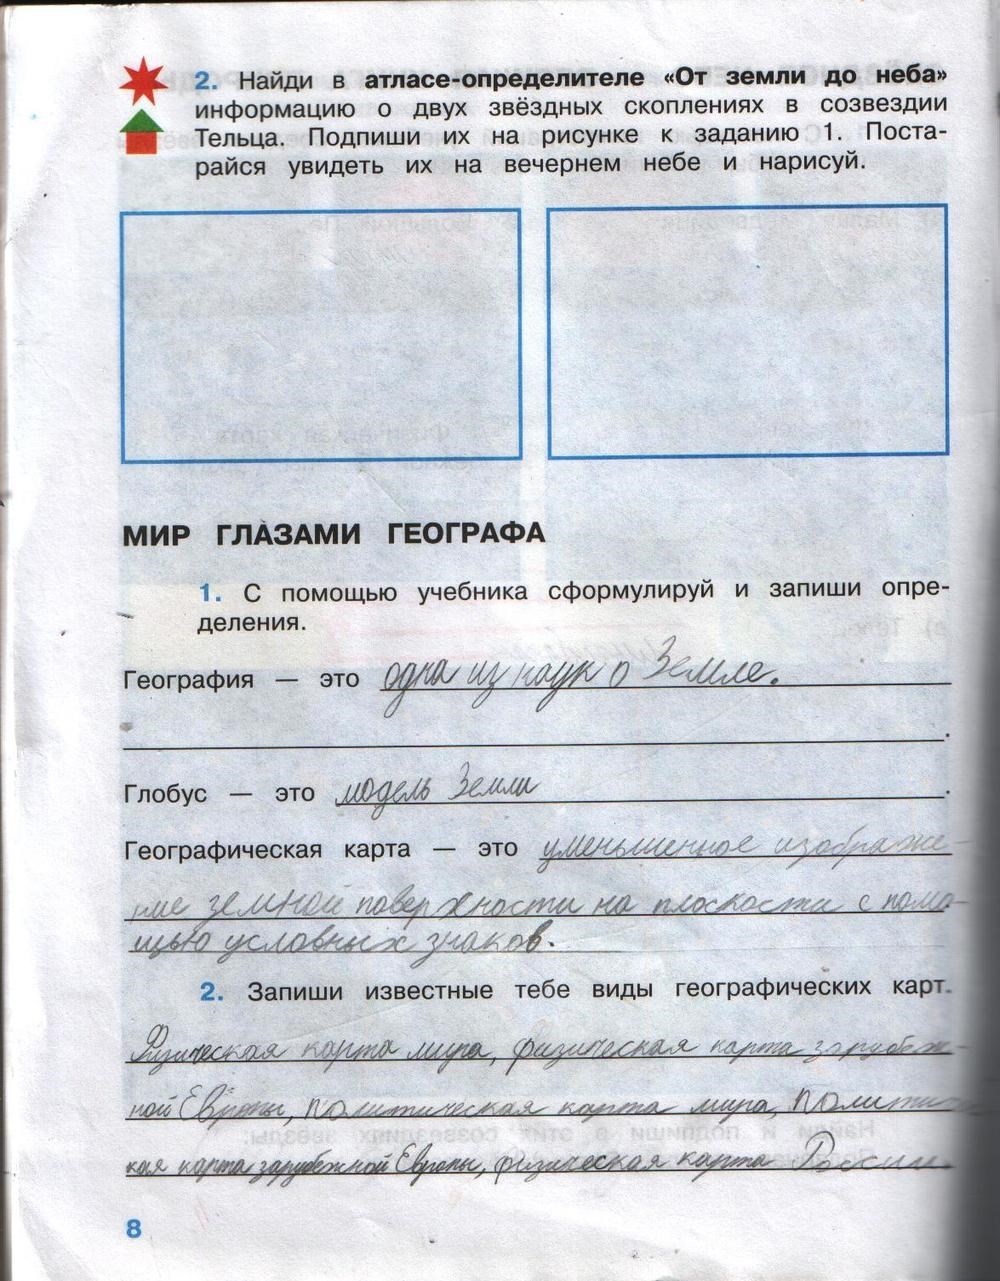 2. Найди в атласе-определителе «От земли до неба»
информацию о двух звёздных скоплениях в созвездии
Тельца. Подпиши их на рисунке к заданию 1. Поста-
райся увидеть их на вечернем небе и нарисуй.
МИР ГЛАЗАМИ ГЕОГРАФА
1. С помощью учебника сформулируй и запиши опре-
деления.
География — это одна из наук о Земле.
Глобус — это модель Земли.
Географическая карта — это уменьшенное изображе-
ние земной поверхности на плоскости с помо-
щью условных знаков.
2. Запиши известные тебе виды географических карт.
Физическая карта мира, физическая карта зарубеж-
ной Европы, политическая карта мира, политичес
кая карта зарубежной Европы, физическая карта России.
8